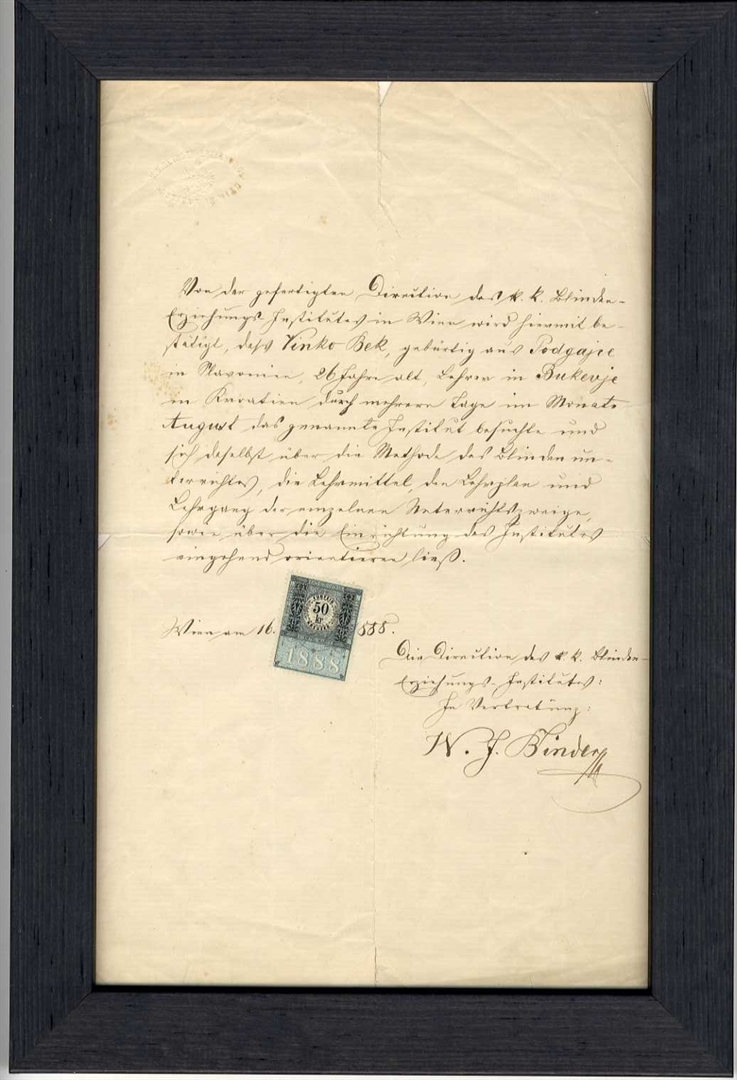 Von der gefertigten Direction des k. k. Blinden-
Erziehungs-Institutes in Wien wird hiermit be-
stätigt, dass Vinko Bek, gebürtig aus Podgajce
in Slavonien, 26 Jahre alt, Lehrer in Bukevje
in Kroatien durch mehrere Tage im Monate
August das genannte Institut besuchte und
sich daselbst über die Methode des Blinden un-
terrichtes, die Lehrmittel, den Lehrplan und
Lehrgang der einzelnen Unterrichtszweige,
sowie über die Einrichtung des Institutes
eingehend orientieren ließ.
50
kr
1888
Wien am 16. 888.
Die Direction des k. k. Blinden-
Erziehungs-Institutes:
In Vertretung:
W. J. Binder